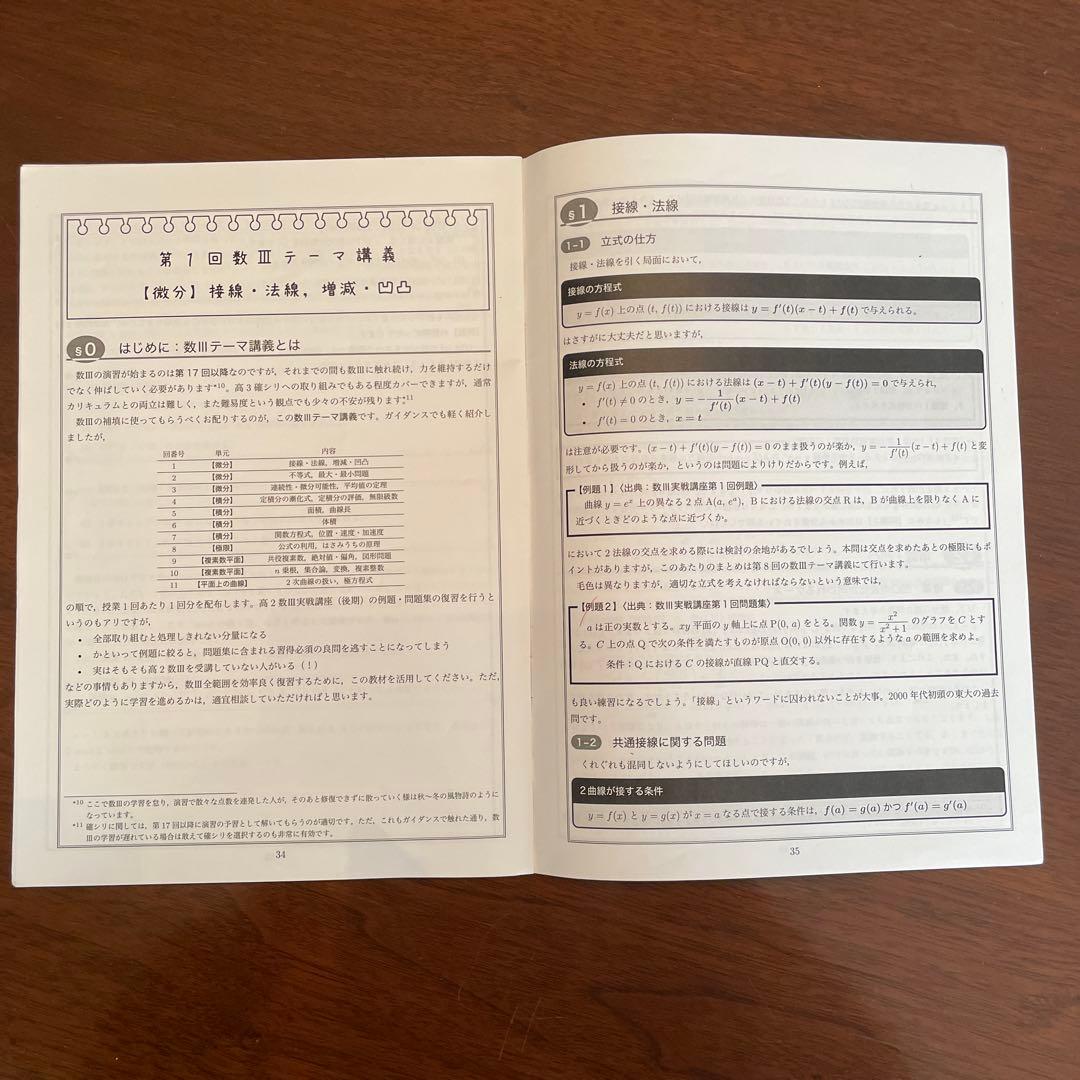 第1回数Ⅲテーマ講義
【微分】接線・法線,増減・凹凸
§0 はじめに:数Ⅲテーマ講義とは
数Ⅲの演習が始まるのは第17回以降なのですが,それまでの間も数Ⅲに触れ続け,力を維持するだけ
でなく伸ばしていく必要があります*10。高3確シリへの取り組みでもある程度カバーできますが,通常
カリキュラムとの両立は難しく,また難易度という観点でも少々の不安が残ります*11
数Ⅲの補填に使ってもらうべくお配りするのが,この数Ⅲテーマ講義です。ガイダンスでも軽く紹介し
ましたが,
回番号 単元 内容
1 【微分】 接線・法線,増減・凹凸
2 【微分】 不等式,最大・最小問題
3 【微分】 連続性・微分可能性,平均値の定理
4 【積分】 定積分の漸化式,定積分の評価,無限級数
5 【積分】 面積,曲線長
6 【積分】 体積
7 【積分】 関数方程式,位置・速度・加速度
8 【極限】 公式の利用,はさみうちの原理
9 【複素数平面】 共役複素数,絶対値・偏角,図形問題
10 【複素数平面】 n乗根,集合論,変換,複素整数
11 【平面上の曲線】 2次曲線の扱い,極方程式
の順で,授業1回あたり1回分を配布します。高2数Ⅲ実戦講座(後期)の例題・問題集の復習を行うと
いうのもアリですが,
• 全部取り組むと処理しきれない分量になる
• かといって例題に絞ると,問題集に含まれる習得必須の良問を逃すことになってしまう
• 実はそもそも高2数Ⅲを受講していない人がいる(!)
などの事情もありますから,数Ⅲ全範囲を効率良く復習するために,この教材を活用してください。ただ,
実際どのように学習を進めるかは,適宜相談していただければと思います。
*10 ここで数Ⅲの学習を怠り,演習で散々な点数を連発した人が,そのあと修復できずに散っていく様は秋〜冬の風物詩のように
なっています。
*11 確シリに関しては,第17回以降に演習の予習として解いてもらうのが適切です。ただ,これもガイダンスで触れた通り,数
Ⅲの学習が遅れている場合は敢えて確シリを選択するのも非常に有効です。
34
§1 接線・法線
1-1 立式の仕方
接線・法線を引く局面において,
接線の方程式
y = f(x) 上の点 (t, f(t)) における接線は y = f′(t)(x − t) + f(t) で与えられる。
はさすがに大丈夫だと思いますが,
法線の方程式
y = f(x) 上の点 (t, f(t)) における法線は (x − t) + f′(t)(y − f(t)) = 0 で与えられ,
• f′(t) ≠ 0 のとき,y = −1/f′(t)(x − t) + f(t)
• f′(t) = 0 のとき,x = t
は注意が必要です。(x − t) + f′(t)(y − f(t)) = 0 のまま扱うのが楽か,y = −1/f′(t)(x − t) + f(t) と変
形してから扱うのが楽か,というのは問題によりけりだからです。例えば,
【例題1】〈出典:数Ⅲ実戦講座第1回例題〉
曲線 y = eˣ 上の異なる2点 A(a, eᵃ),B における法線の交点 R は,B が曲線上を限りなく A に
近づくときどのような点に近づくか。
において2法線の交点を求める際には検討の余地があるでしょう。本問は交点を求めたあとの極限にもポ
イントがありますが,このあたりのまとめは第8回の数Ⅲテーマ講義にて行います。
毛色は異なりますが,適切な立式を考えなければならないという意味では,
【例題2】〈出典:数Ⅲ実戦講座第1回問題集〉
a は正の実数とする。xy 平面の y 軸上に点 P(0, a) をとる。関数 y = x²/(x² + 1) のグラフを C とす
る。C 上の点 Q で次の条件を満たすものが原点 O(0, 0) 以外に存在するような a の範囲を求めよ。
条件:Q における C の接線が直線 PQ と直交する。
も良い練習になるでしょう。「接線」というワードに囚われないことが大事。2000年代初頭の東大の過去
問です。
1-2 共通接線に関する問題
くれぐれも混同しないようにしてほしいのですが,
2曲線が接する条件
y = f(x) と y = g(x) が x = a なる点で接する条件は,f(a) = g(a) かつ f′(a) = g′(a)
35